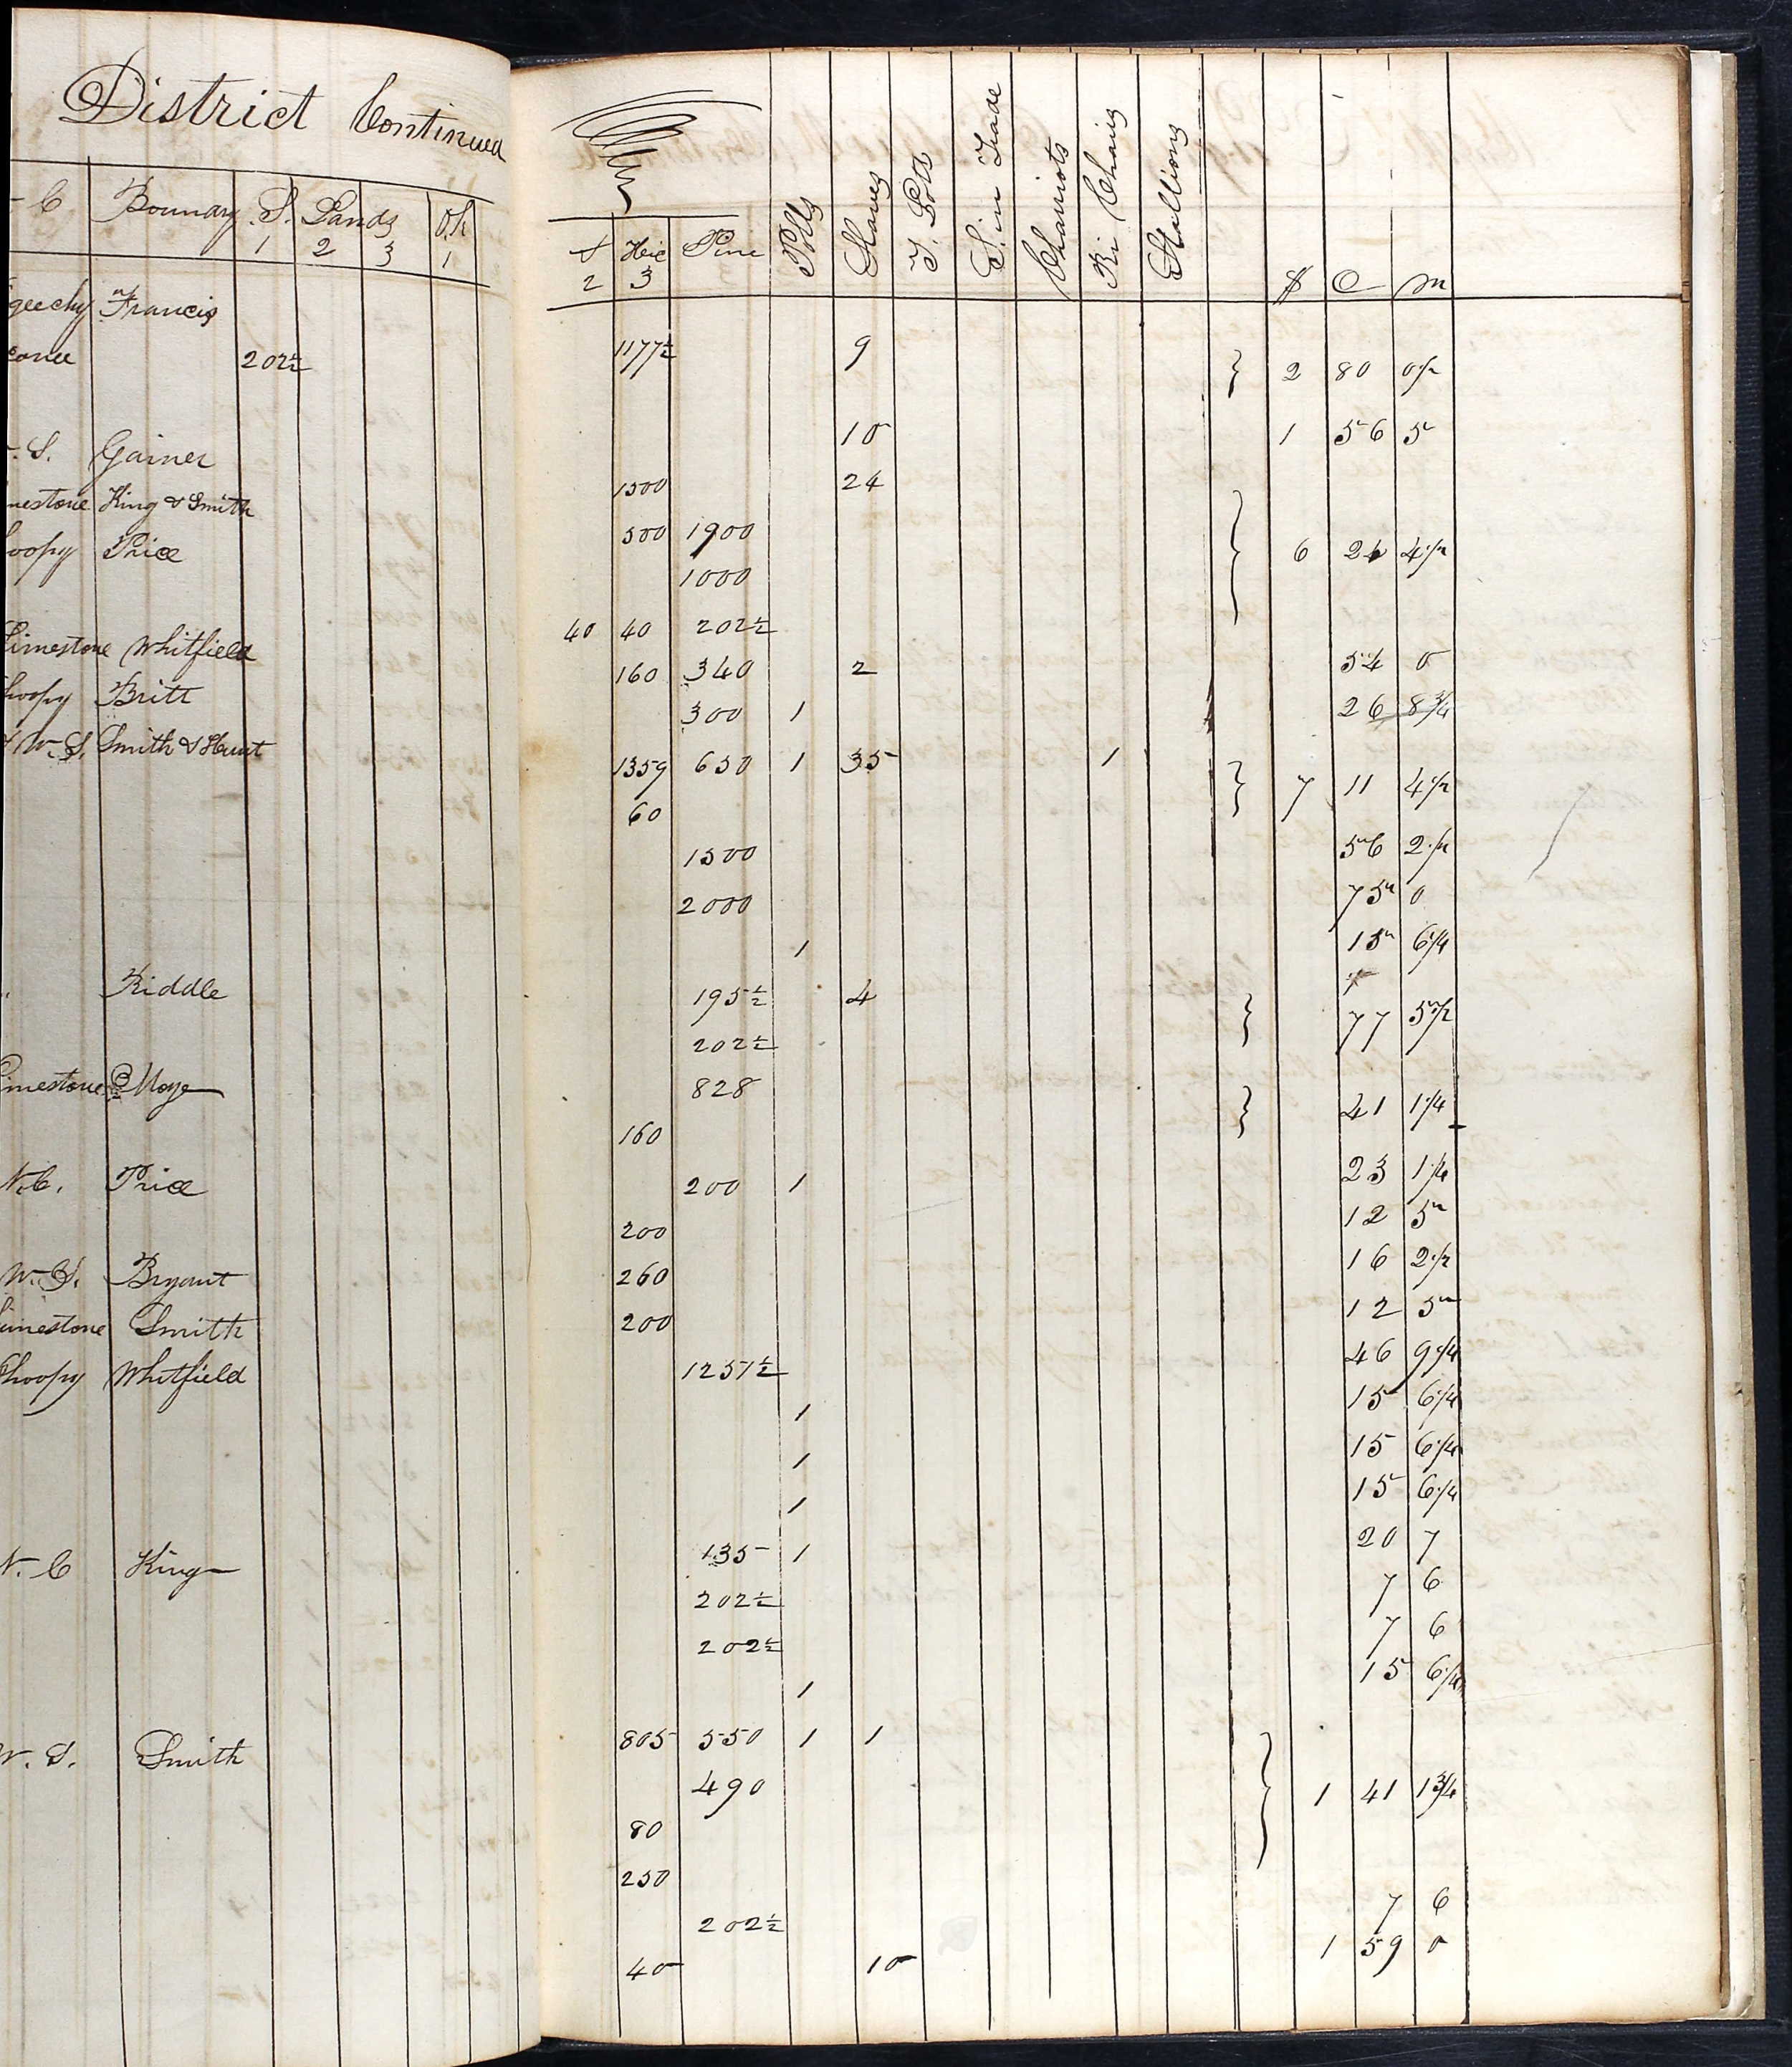 District Continued
C Bounary S. Lands
1 2 3 1
geechy Francis
202½
S. Gainer
mestone King & Smith
oopy Price
Limestone Whitfield
hoopy Britt
W. S. Smith & Hunt
Riddle
imestone Moye
N. C. Price
W. S. Bryant
imestone Smith
hoopy Whitfield
N. C King
W. S. Smith
Pine Polls Slaves T. Lots S. in Trade Chariots Ri Chairs Stallions
2 3 $ C m
1177½ 9 } 2 80 0½
10 1 56 5
1500 24
500 1900 } 6 24 4½
1000
40 40 202½
160 340 2 54 0
300 1 26 8¾
1359 650 1 35 1 } 7 11 4½
60
1500 56 2½
2000 75 0
1 15 6¼
195½ 4 } 77 5½
202½
828 } 41 1¼
160
200 1 23 1¼
200 12 5
260 16 2½
200 12 5
1251½ 46 9¼
1 15 6¼
1 15 6¼
1 15 6¼
135 1 20 7
202½ 7 6
202½ 7 6
1 15 6¼
805 550 1 1
490 } 1 41 1¾
80
250
202½ 7 6
40 10 1 59 0